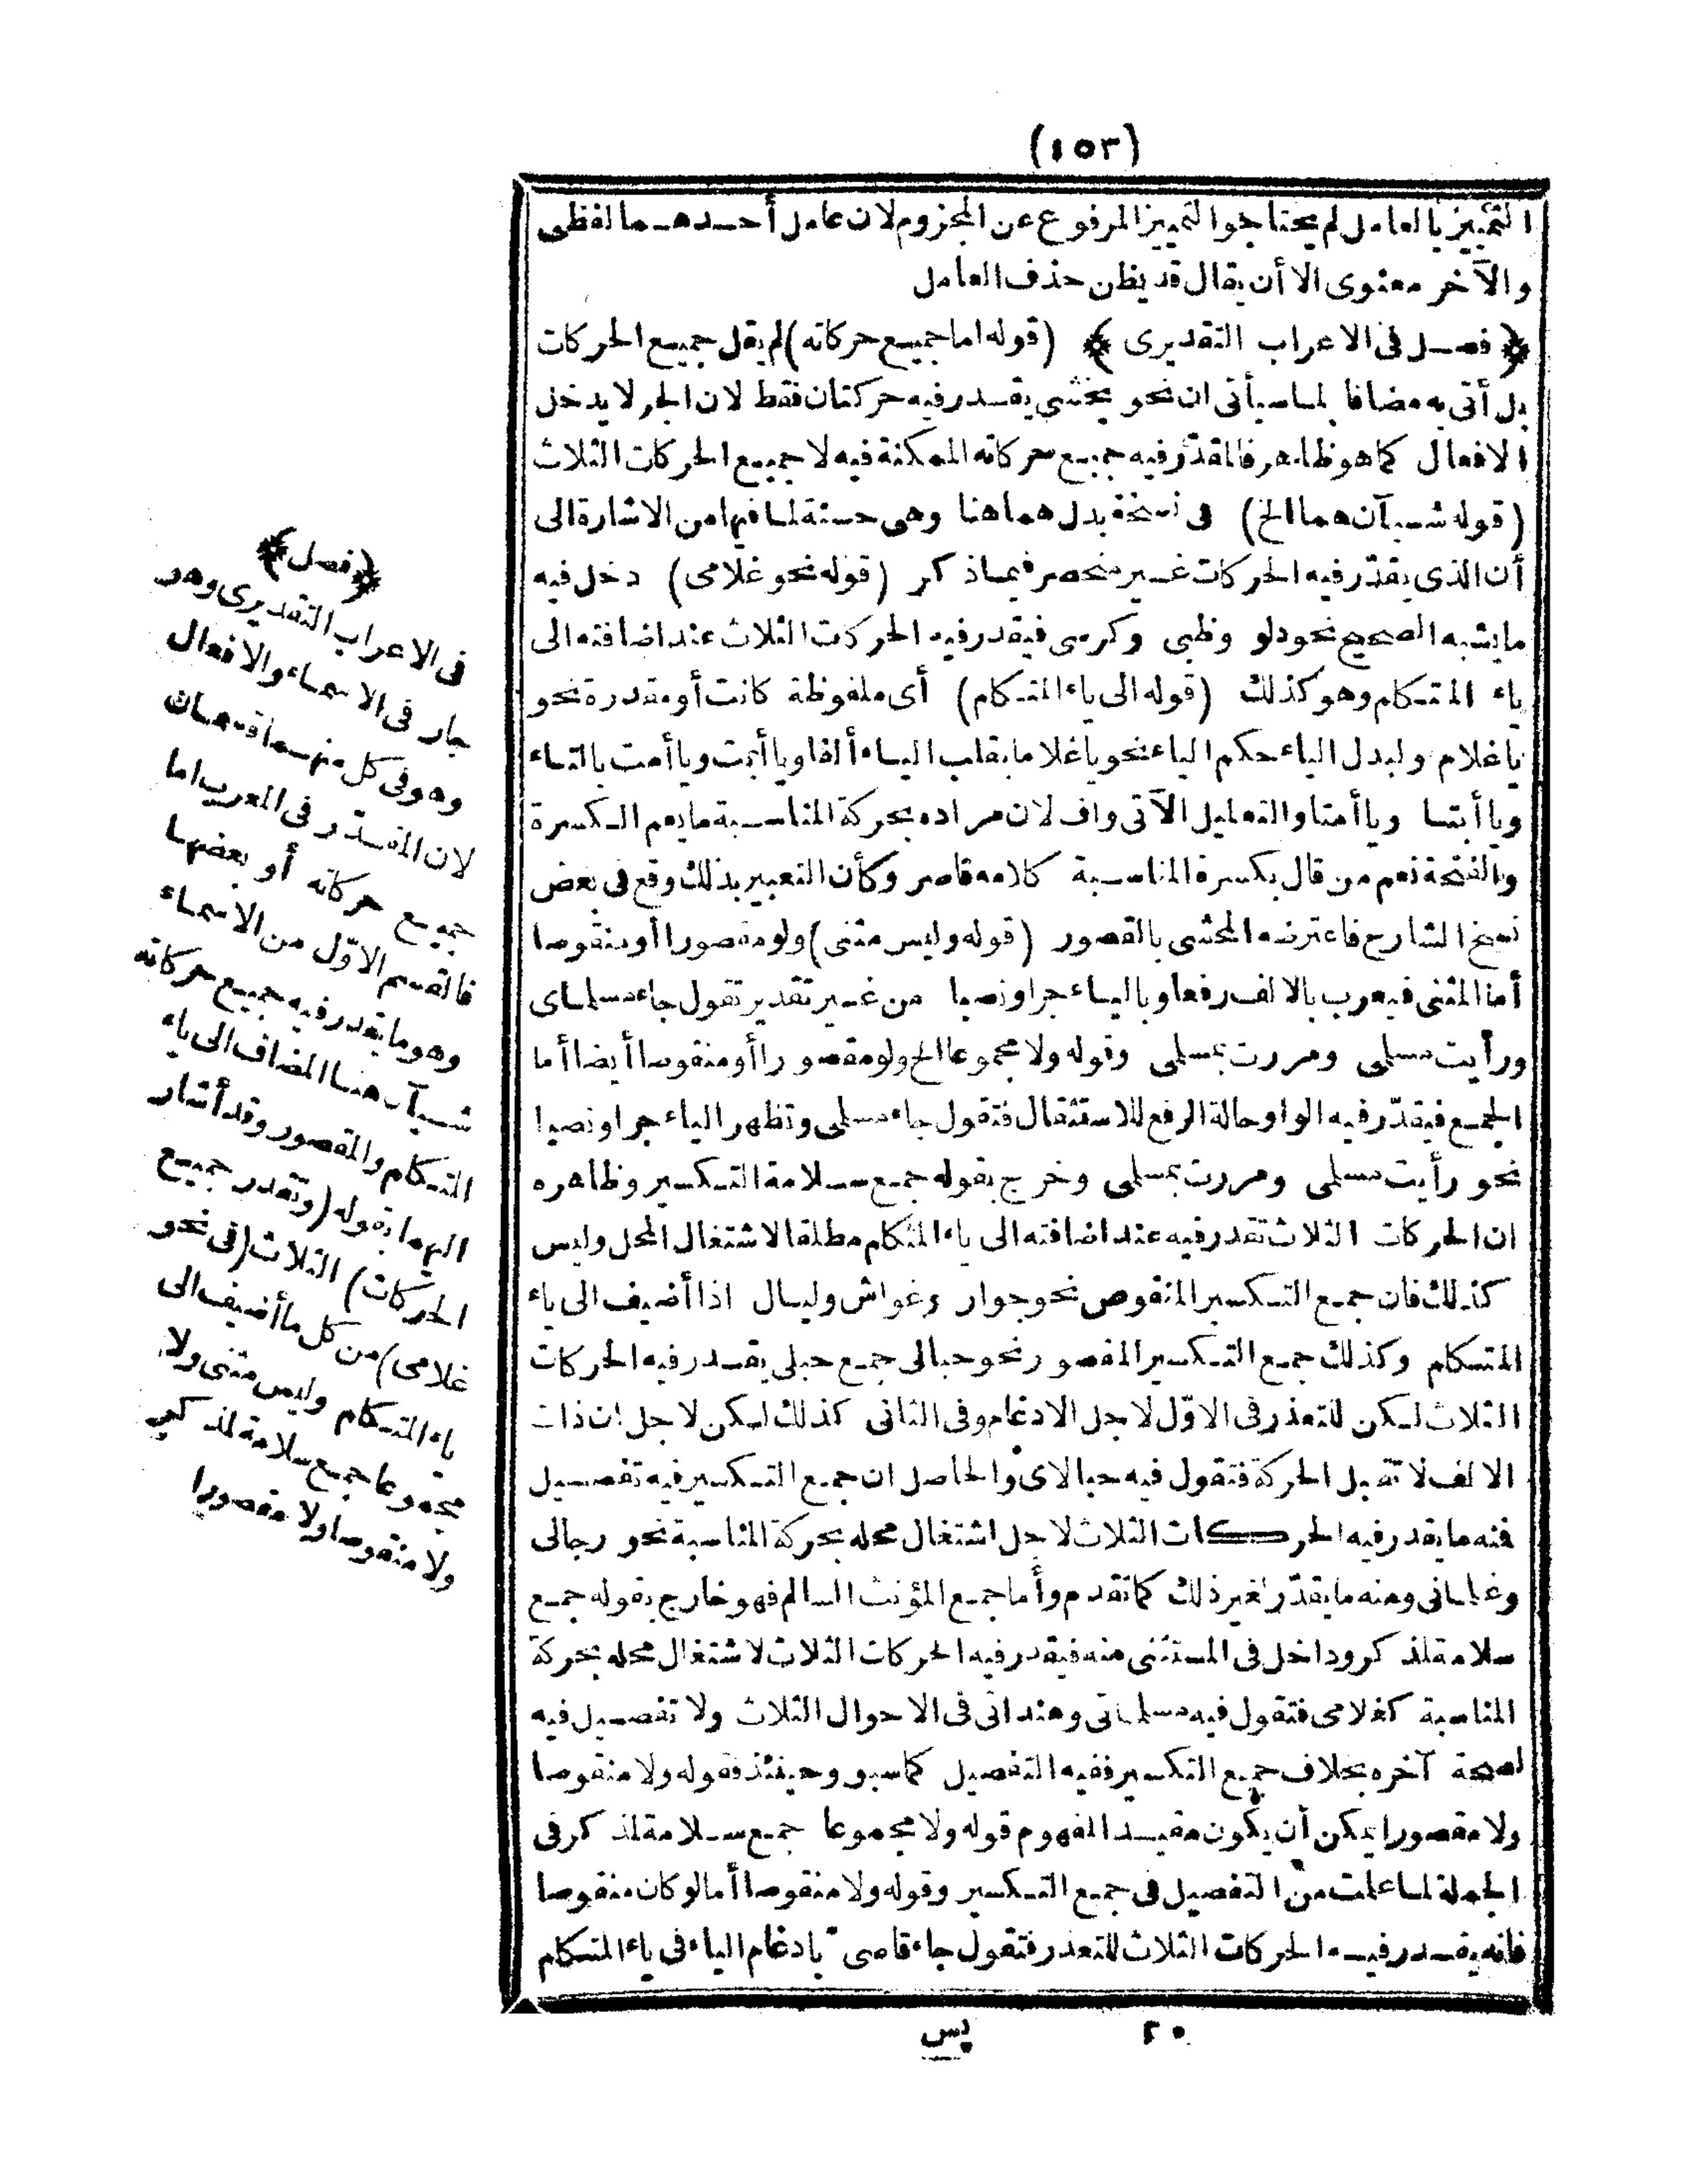 (١٥٣)
التمييز بالعامل لم يحتاجوا لتمييز المرفوع عن المجزوم لان عامل أحدهما لفظى
والآخر معنوى الا أن يقال قد يظن حذف العامل
﴿ فصل فى الاعراب التقديرى ﴾ (قوله اما جميع حركاته) لم يقل جميع الحركات
بل أتى به مضافا لما سيأتى ان نحو يخشى يقدر فيه حركتان فقط لان الجر لا يدخل
الافعال كما هو ظاهر فالمقدّر فيه جميع حركاته الممكنة فيه لا جميع الحركات الثلاث
(قوله شيآن هما الخ) فى نسخة بدل هما هنا وهى حسنة لما فيها من الاشارة الى
أن الذى يقدّر فيه الحركات غير منحصر فيما ذكر (قوله نحو غلامى) دخل فيه
ما يشبه الصحيح نحو دلو وظبى وكرسى فيقدر فيه الحركات الثلاث عند اضافته الى
ياء المتكلم وهو كذلك (قوله الى ياء المتكلم) أى ملفوظة كانت أو مقدرة نحو
يا غلام ولبدل الياء حكم الياء نحو يا غلاما بقلب الياء ألفا ويا أبت ويا أمت بالتاء
ويا أبتا ويا أمتا والتعليل الآتى واف لان مراده بحركة المناسبة ما يعم الكسرة
والفتحة نعم من قال بكسرة المناسبة كلامه قاصر وكأن التعبير بذلك وقع فى بعض
نسخ الشارح فاعترضه المحشى بالقصور (قوله وليس مثنى) ولو مقصورا أو منقوصا
أما المثنى فيعرب بالالف رفعا وبالياء جرا ونصبا من غير تقدير تقول جاء مسلماى
ورأيت مسلمى ومررت بمسلمى وقوله ولا مجموعا الخ ولو مقصورا أو منقوصا أيضا أما
الجمع فيقدّر فيه الواو حالة الرفع للاستثقال فتقول جاء مسلمى وتظهر الياء جرا ونصبا
نحو رأيت مسلمى ومررت بمسلمى وخرج بقوله جمع سلامة التكسير وظاهره
ان الحركات الثلاث تقدر فيه عند اضافته الى ياء المتكلم مطلقا لاشتغال المحل وليس
كذلك فان جمع التكسير المنقوص نحو جوار وغواش وليال اذا أضيف الى ياء
المتكلم وكذلك جمع التكسير المقصور نحو حبالى جمع حبلى يقدر فيه الحركات
الثلاث لكن للتعذر فى الاوّل لاجل الادغام وفى الثانى كذلك لكن لاجل ان ذات
الالف لا تقبل الحركة فتقول فيه حبالاى والحاصل ان جمع التكسير فيه تفصيل
فنه ما يقدر فيه الحركات الثلاث لاجل اشتغال محله بحركة المناسبة نحو رجالى
وغلمانى ومنه ما يقدّر لغير ذلك كما تقدم وأما جمع المؤنث السالم فهو خارج بقوله جمع
سلامة لمذكر وداخل فى المستثنى منه فيقدر فيه الحركات الثلاث لاشتغال محله بحركة
المناسبة كغلامى فتقول فيه مسلماتى وهنداتى فى الاحوال الثلاث ولا تفصيل فيه
لصحة آخره بخلاف جمع التكسير ففيه التفصيل كما سبق وحينئذ فقوله ولا منقوصا
ولا مقصورا يمكن أن يكون مقيدا لمفهوم قوله ولا مجموعا جمع سلامة لمذكر فى
الجملة لما علمت من التفصيل فى جمع التكسير وقوله ولا منقوصا أما لو كان منقوصا
فانه يقدر فيه الحركات الثلاث للتعذر فتقول جاء قاضى بادغام الياء فى ياء المتكلم
٢٠ يس
﴿فصل﴾
فى الاعراب التقديرى وهو
جار فى الاسماء والافعال
وهو فى كل منهما قسمان
لان المقدّر فى المعرب اما
جميع حركاته أو بعضها
فالقسم الاوّل من الاسماء
وهو ما يقدر فيه جميع حركاته
شيآن هنا المضاف الى ياء
المتكلم والمقصور وقد أشار
اليهما بقوله (وتقدر جميع
الحركات) الثلاث (فى نحو
غلامى) من كل ما أضيف الى
ياء المتكلم وليس مثنى ولا
مجموعا جمع سلامة لمذكر
ولا منقوصا ولا مقصورا